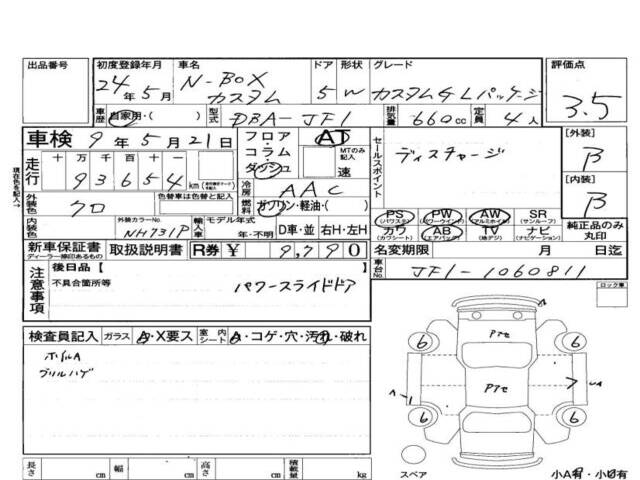 出品番号 初度登録年月 車名 ドア 形状 グレード 評価点
24年5月 N-BOX カスタム 5 W カスタムG Lパッケージ 3.5
車歴 自家用・( ) 型式 DBA-JF1 排気量 660cc 定員 4人
車検 9年5月21日 フロア・コラム・ダッシュ AT MTのみ記入 速 セールスポイント ディスチャージ [外装] B
走行 十万 万 千 百 十 一
93654km
冷房 AAC [内装] B
外装色 クロ 色替車は色替と記入 燃料 ガソリン・軽油・( )
PS (パワステ) PW (パワーウインド) AW (アルミホイル) SR (サンルーフ)
内装色 外装カラーNo. NH731P 輸入車 モデル年式 年・不明 D車・並 右H・左H
カワ (カワシート) AB (エアバック) TV (地デジ) ナビ (ナビゲーション) 純正品のみ丸印
現在色を記入→
新車保証書 ディーラー捺印あるもの 取扱説明書 R券 ¥ 9,790 名変期限 月 日迄
注意事項 後日品【 】 車台No. JF1-1060811
不具合箇所等 パワースライドドア
ロック車
検査員記入 ガラス A・X要ス 室内シート A・コゲ・穴・汚れ・破れ
ホイルA
グリルハゲ
Pアセ
Pアセ
6 6
6 6
スペア 小A有・小凹有
長さ cm 幅 cm 高さ cm 積載量 kg